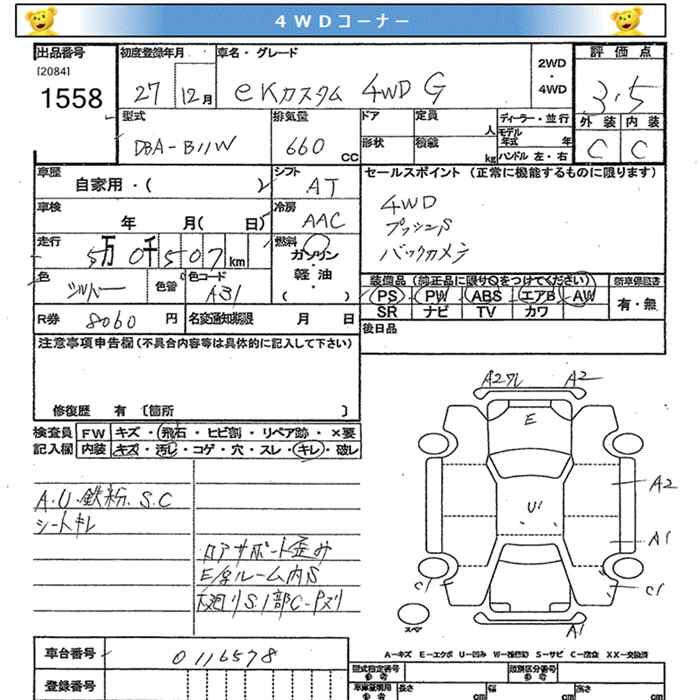 4WDコーナー
出品番号
[2084]
1558
初度登録年月
27 12月
車名・グレード
eKカスタム 4WD G
2WD
・
4WD
評価点
3.5
外装 内装
C C
型式
DBA-B11W
排気量
660 CC
ドア
定員 人
形状
積載 kg
ディーラー・並行
モデル年式 年
ハンドル 左・右
車歴
自家用・( )
シフト
AT
車検
年 月( 日)
冷房
AAC
走行
5万0千507km
燃料
ガソリン
・
軽油
( )
色
シルバー
色替
色コード
A31
R券 8060 円
名変通知期限 月 日
セールスポイント (正常に機能するものに限ります)
4WD
プッシュS
バックカメラ
装備品(純正品に限り〇をつけてください)
PS PW ABS エアB AW
SR ナビ TV カワ
新車保証書
有・無
後日品
注意事項申告欄(不具合内容等は具体的に記入して下さい)
修復歴 有 [箇所 ]
検査員 FW キズ・飛石・ヒビ割・リペア跡・×要
記入欄 内装 キズ・汚れ・コゲ・穴・スレ・キレ・破レ
A.U.鉄粉.S.C
シートキレ
ロアサポート歪み
E/gルーム内S
下廻りS.1部C-Pヌリ
A2ワレ A2
E
A2
U1
A1
C1 C1
スペア
A1
A-キズ E-エクボ U-凹み W-補修跡 S-サビ C-腐食 XX-交換済
車台番号 0116578
登録番号
型式指定番号
参考
類別区分番号
参考
車庫証明用
参考
長さ cm
幅 cm
高さ cm